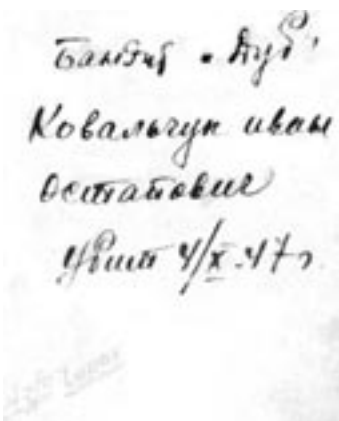 Бандит „Дуб”
Ковальчук иван
Остапович
Убит 4/X-47г